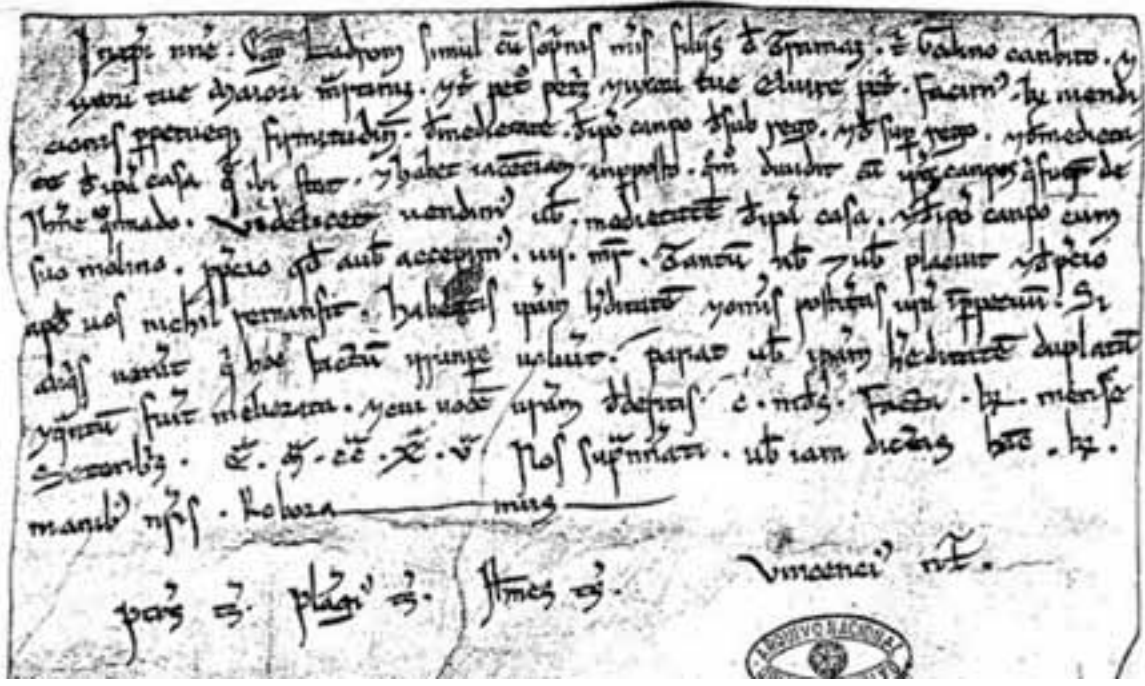 Jn xp̄i nn̄e. Ego Ladrom simul cū sopr̄nis mīs filijs d̄ . t̄ Godino canbito. ⁊
uxori tue Maiori mr̄tiniz. ⁊t̄ pet̄ petz̄ ⁊ uxori tue Eluire pet̄. Facim᾿. kr̄ uendi
cionis ꝑpetueq̄ firmitudinis. d̄ medietate. d̄ ip̄o canpo d̄ sub rego. ⁊ d̄ sup̄ rego. ⁊ d̄ medieta
te d̄ ip̄a casa q̄ ibi stat. ⁊ habet iacēciam q̄m diuidit cū ip̄o canpo q̄ fuit de
John̄e q̄mado. Videlicet uendim᾿ ub̄. medietatē d̄ ip̄a casa. ⁊ d̄ ip̄o canpo cum
suo molino. p̄ p̄cio qd̄ a uob̄ accepim᾿. uij. mr̄. Tantū nob̄ ⁊ uob̄ placuit ⁊ d̄ p̄cio
apd̄ uos nichil remansit. habeatis ip̄am h̄ditatē ⁊ omīs posteritas ur̄a inꝑpetuū. Si
aliq̄s uenerit q̄ hoc factū irrūpe uoluit. pariat ub̄ ip̄am h̄editatē duplatā
⁊ q̄ntū fuit meliorata. ⁊ cui uocē ur̄am dederitis. c. md̄s. Facta. kr̄. mense
Setenbr̄. E͂. M͂. cc͂. X͂. v͂. Nos sup̄nn̄ati. ub̄ iam dictis hāc. kr̄.
manib᾿ nr̄is. Robora mus
petr᾿ ts̄. pelagi᾿ ts̄. Johnēs ts̄. Vincenci᾿ nt̄.
ARQUIVO NACIONAL